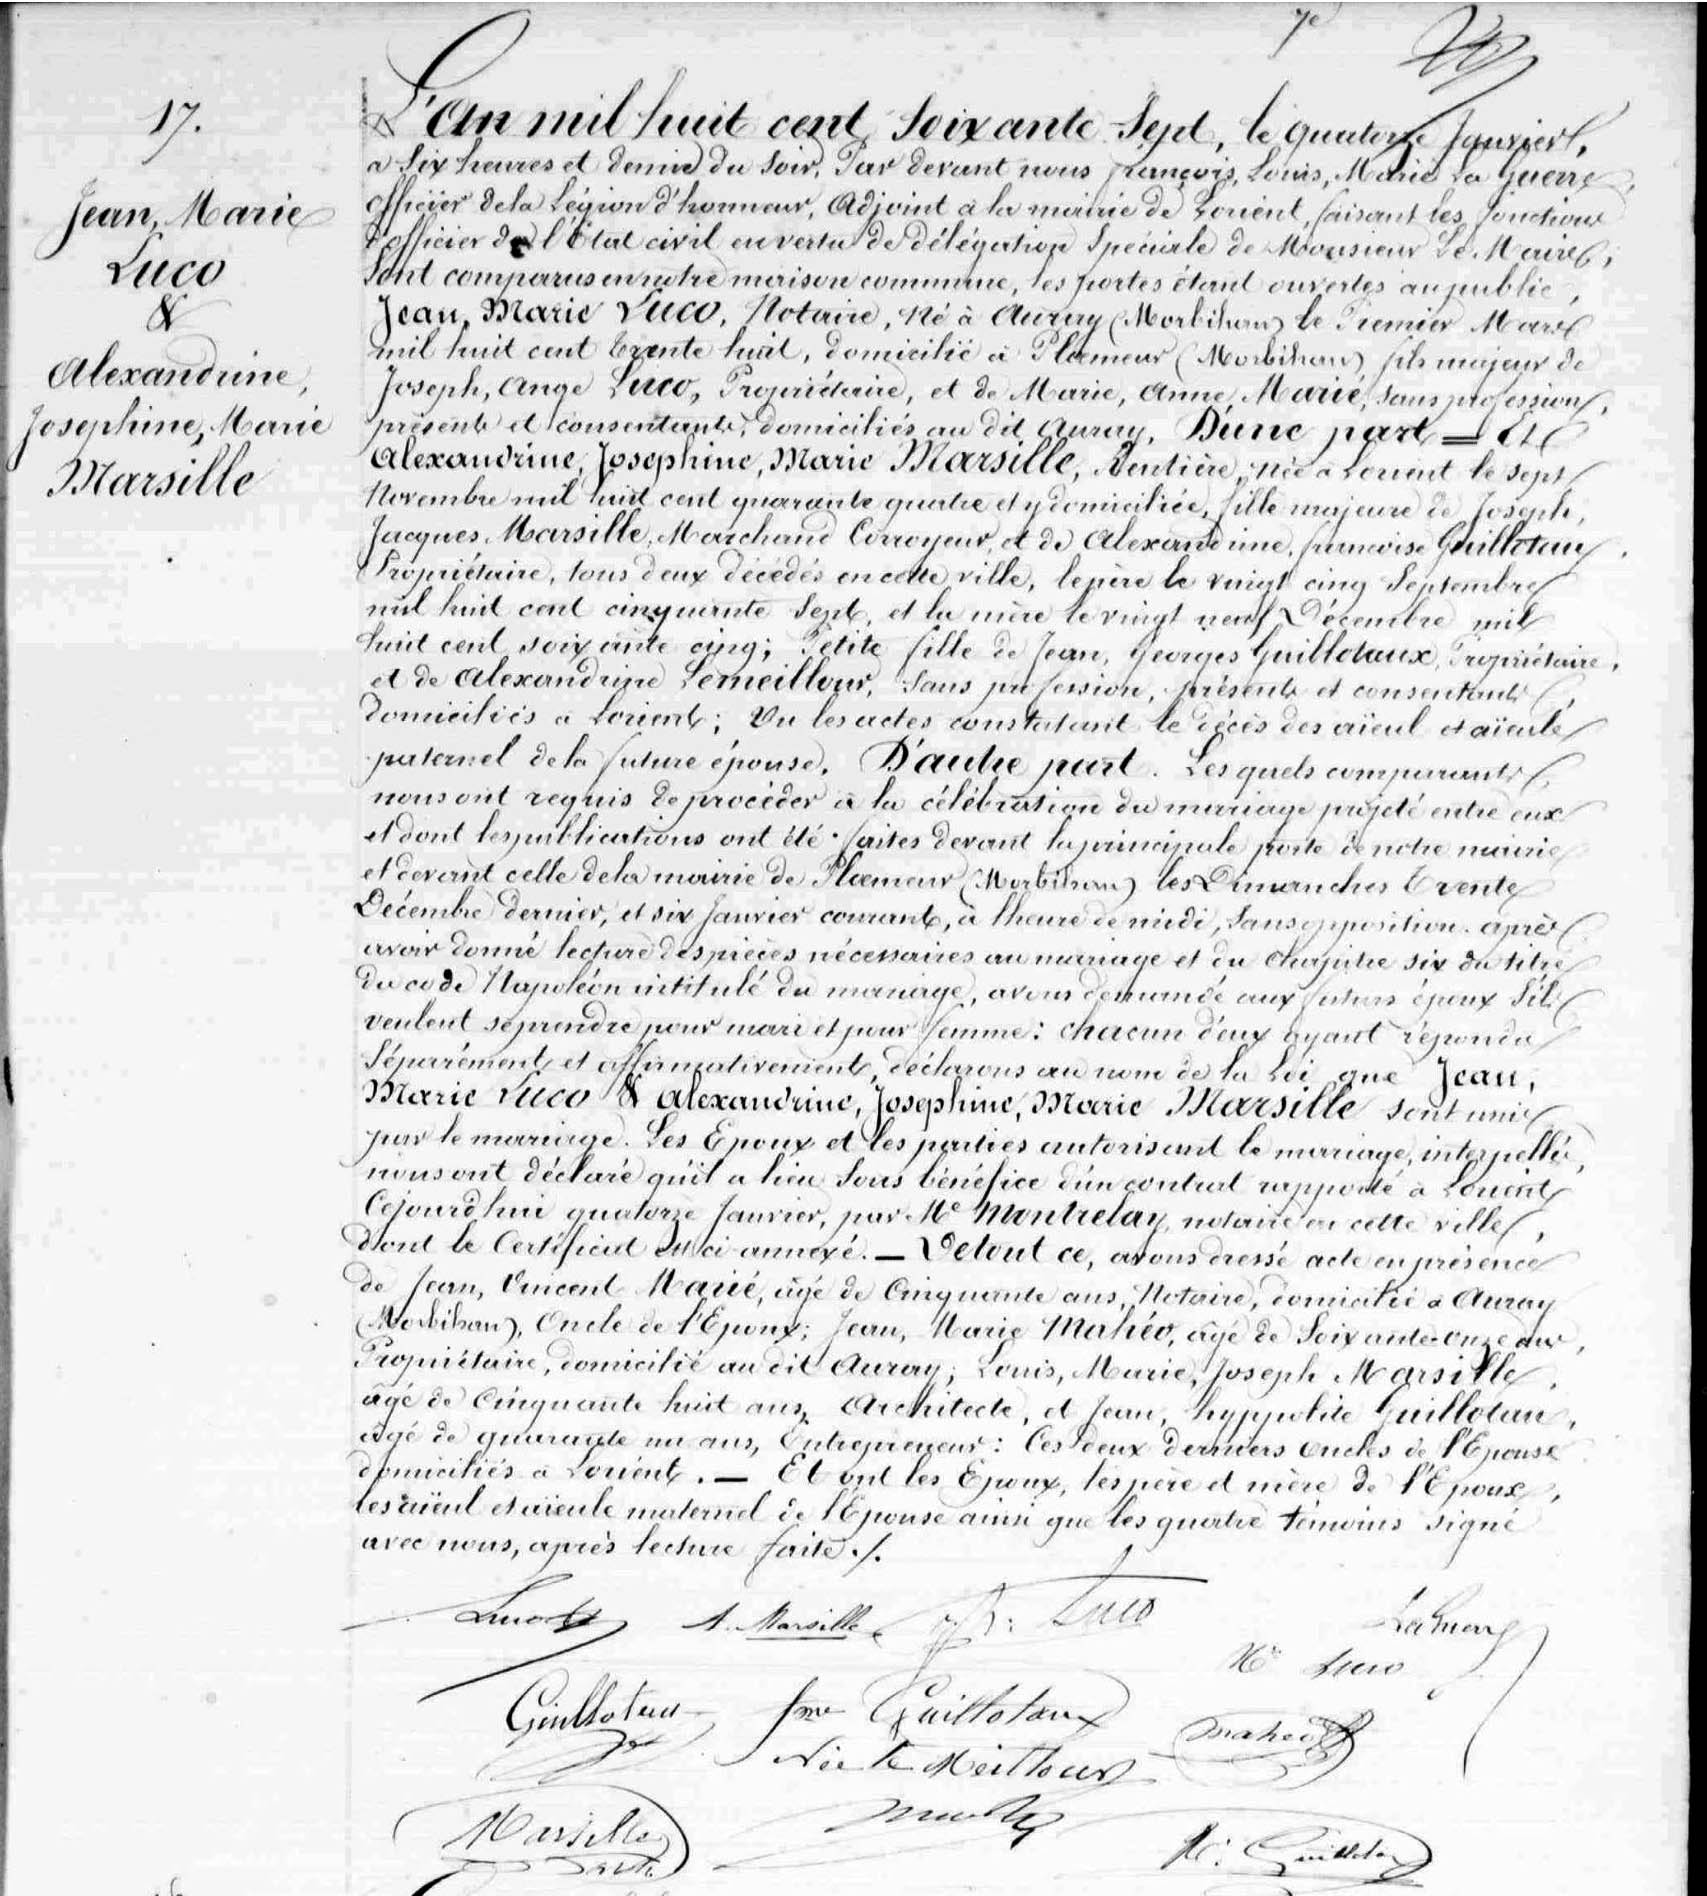 7e
17.
Jean, Marie
Luco
&
Alexandrine,
Josephine, Marie
Marsille
L'An mil huit cent Soixante Sept, le quatorze Janvier,
a Six heures et demie du Soir, Par devant nous françois, Louis, Marie La Guerre,
officier de la Légion d'honneur, Adjoint à la mairie de Lorient, faisant les fonctions
d'officier de l'Etat civil en vertu de délégation Spéciale de Monsieur Le Maire;
Sont comparus en notre maison commune, les portes étant ouvertes au public,
Jean, Marie Luco, Notaire, Né à Auray (Morbihan) le Premier Mars
mil huit cent trente huit, domicilié à Ploemeur (Morbihan) fils majeur de
Joseph, Ange Luco, Propriétaire, et de Marie, Anne, Marié, sans profession,
présents et consentants, domiciliés au dit Auray, D'une part — Et
Alexandrine, Josephine, Marie Marsille, Rentière, née à Lorient le sept
Novembre mil huit cent quarante quatre et y domiciliée, fille majeure de Joseph,
Jacques, Marsille, Marchand Corroyeur, et de Alexandrine, francoise Guillotaux,
Propriétaire, tous deux décédés en cette ville, le père le vingt cinq Septembre
mil huit cent cinquante Sept, et la mère le vingt neuf Décembre mil
huit cent soixante cinq; Petite fille de Jean, Georges Guillotaux, Propriétaire,
et de Alexandrine Lemeillour, Sans profession, présents et consentants,
domiciliés à Lorient; Vu les actes constatant le décès des aïeul et aïeule
paternel de la future épouse, D'autre part. Les quels comparants
nous ont requis de procéder à la célébration du mariage projeté entre eux
et dont les publications ont été faites devant la principale porte de notre mairie
et devant celle de la mairie de Ploemeur (Morbihan) les Dimanches trente
Décembre dernier, et six Janvier courant, à l'heure de midi, sans opposition. après
avoir donné lecture des pièces nécessaires au mariage et du chapitre six du titre
du code Napoléon intitulé du mariage, avons demandé aux futurs époux S'ils
veulent se prendre pour mari et pour femme: chacun d'eux ayant répondu
Séparément et affirmativement, déclarons au nom de la Loi que Jean,
Marie Luco & Alexandrine, Josephine, Marie Marsille sont unis
par le mariage. Les Epoux et les parties autorisant le mariage, interpellés,
nous ont déclaré qu'il a lieu Sous bénéfice d'un contrat rapporté à Lorient
Cejourd'hui quatorze Janvier, par Me Montrelay, notaire en cette ville,
dont le Certificat est ci-annexé. — De tout ce, avons dressé acte en présence
de Jean, Vincent Marié, âgé de Cinquante ans, Notaire, domicilié à Auray
(Morbihan), Oncle de l'Epoux; Jean, Marie Mahéo, âgé de Soixante-onze ans,
Propriétaire, domicilié au dit Auray; Louis, Marie, Joseph Marsille,
âgé de Cinquante huit ans, Architecte, et Jean, hyppolite Guillotaux,
âgé de quarante un ans, Entrepreneur: Ces deux derniers oncles de l'Epouse
domiciliés à Lorient. — Et ont les Epoux, les père et mère de l'Epoux,
les aïeul et aïeule maternel de l'Epouse ainsi que les quatre témoins signé
avec nous, après lecture faite ./.
Luco A. Marsille Luco LaGuerre
Me Luco
Guillotaux fme Guillotaux Maheo
Née Le Meillour
Marsille
Hte Guillotaux